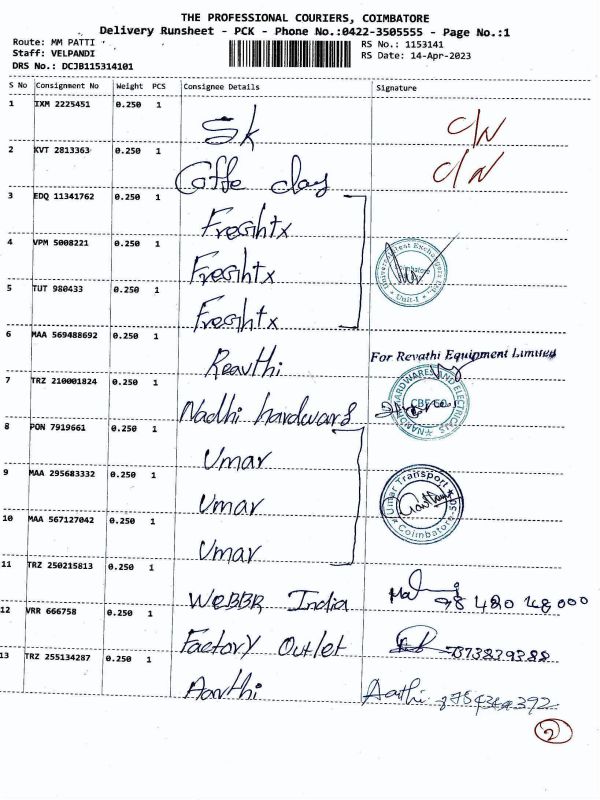 THE PROFESSIONAL COURIERS, COIMBATORE
Delivery Runsheet - PCK - Phone No.:0422-3505555 - Page No.:1
Route: MM PATTI
RS No.: 1153141
Staff: VELPANDI
RS Date: 14-Apr-2023
DRS No.: DCJB115314101
S No Consignment No Weight PCS Consignee Details Signature
1 IXM 2225451 0.250 1 SK C/N
2 KVT 2813363 0.250 1 Coffe day C/N
3 EDQ 11341762 0.250 1 Freshtx
4 VPM 5008221 0.250 1 Freshtx
Coimbatore
Unit-I
5 TUT 980433 0.250 1 Freshtx
6 MAA 569488692 0.250 1 Revthi For Revathi Equipment Limited
7 TRZ 210001824 0.250 1 Nadhi hardwards
HARDWARES AND ELECTRICALS
8 PON 7919661 0.250 1 Umar
9 MAA 295683332 0.250 1 Umar
Umar Transport
Coimbatore
10 MAA 567127042 0.250 1 Umar
11 TRZ 250215813 0.250 1 WEBBR India 98 480 48000
12 VRR 666758 0.250 1 Factory Outlet
13 TRZ 255134287 0.250 1 Aarthi Aathi
2